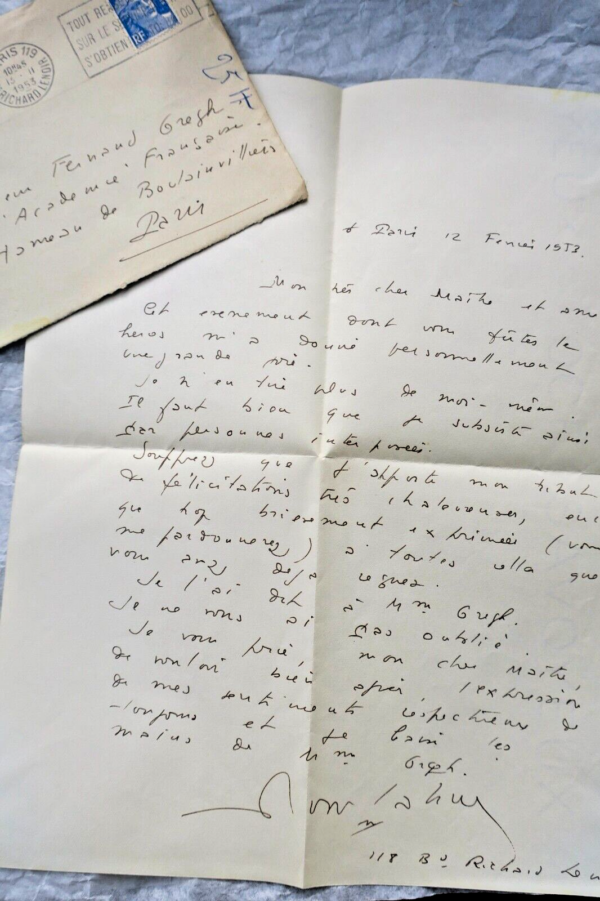 TOUT RE
SUR LE S
S'OBTIEN
RF
00
PARIS 119
10H45
1953
RICHARD LENOIR
25 F
Fernand Gregh
Académie Française
Hameau de Boulainvilliers
Paris
Paris 12 Fevrier 1953.
Mon très cher Maître et ami
Cet evenement dont vous fûtes le
heros m'a donné personnellement
une grande joie.
Je n'en tire plus de moi-même.
Il faut bien que je subsiste ainsi
par personnes interposées.
Souffrez que j'apporte mon tribut
de félicitations très chaleureuses,
que trop brievement exprimées (vous
me pardonnerez) à toutes celles que
vous avez déjà reçues.
Je l'ai dit à Mme Gregh.
Je ne vous ai pas oublié.
Je vous prie, mon cher Maître,
de vouloir bien agréer l'expression
de mes sentiments respectueux de
toujours et je baise les
mains de Mme Gregh.
118 Bd Richard Len